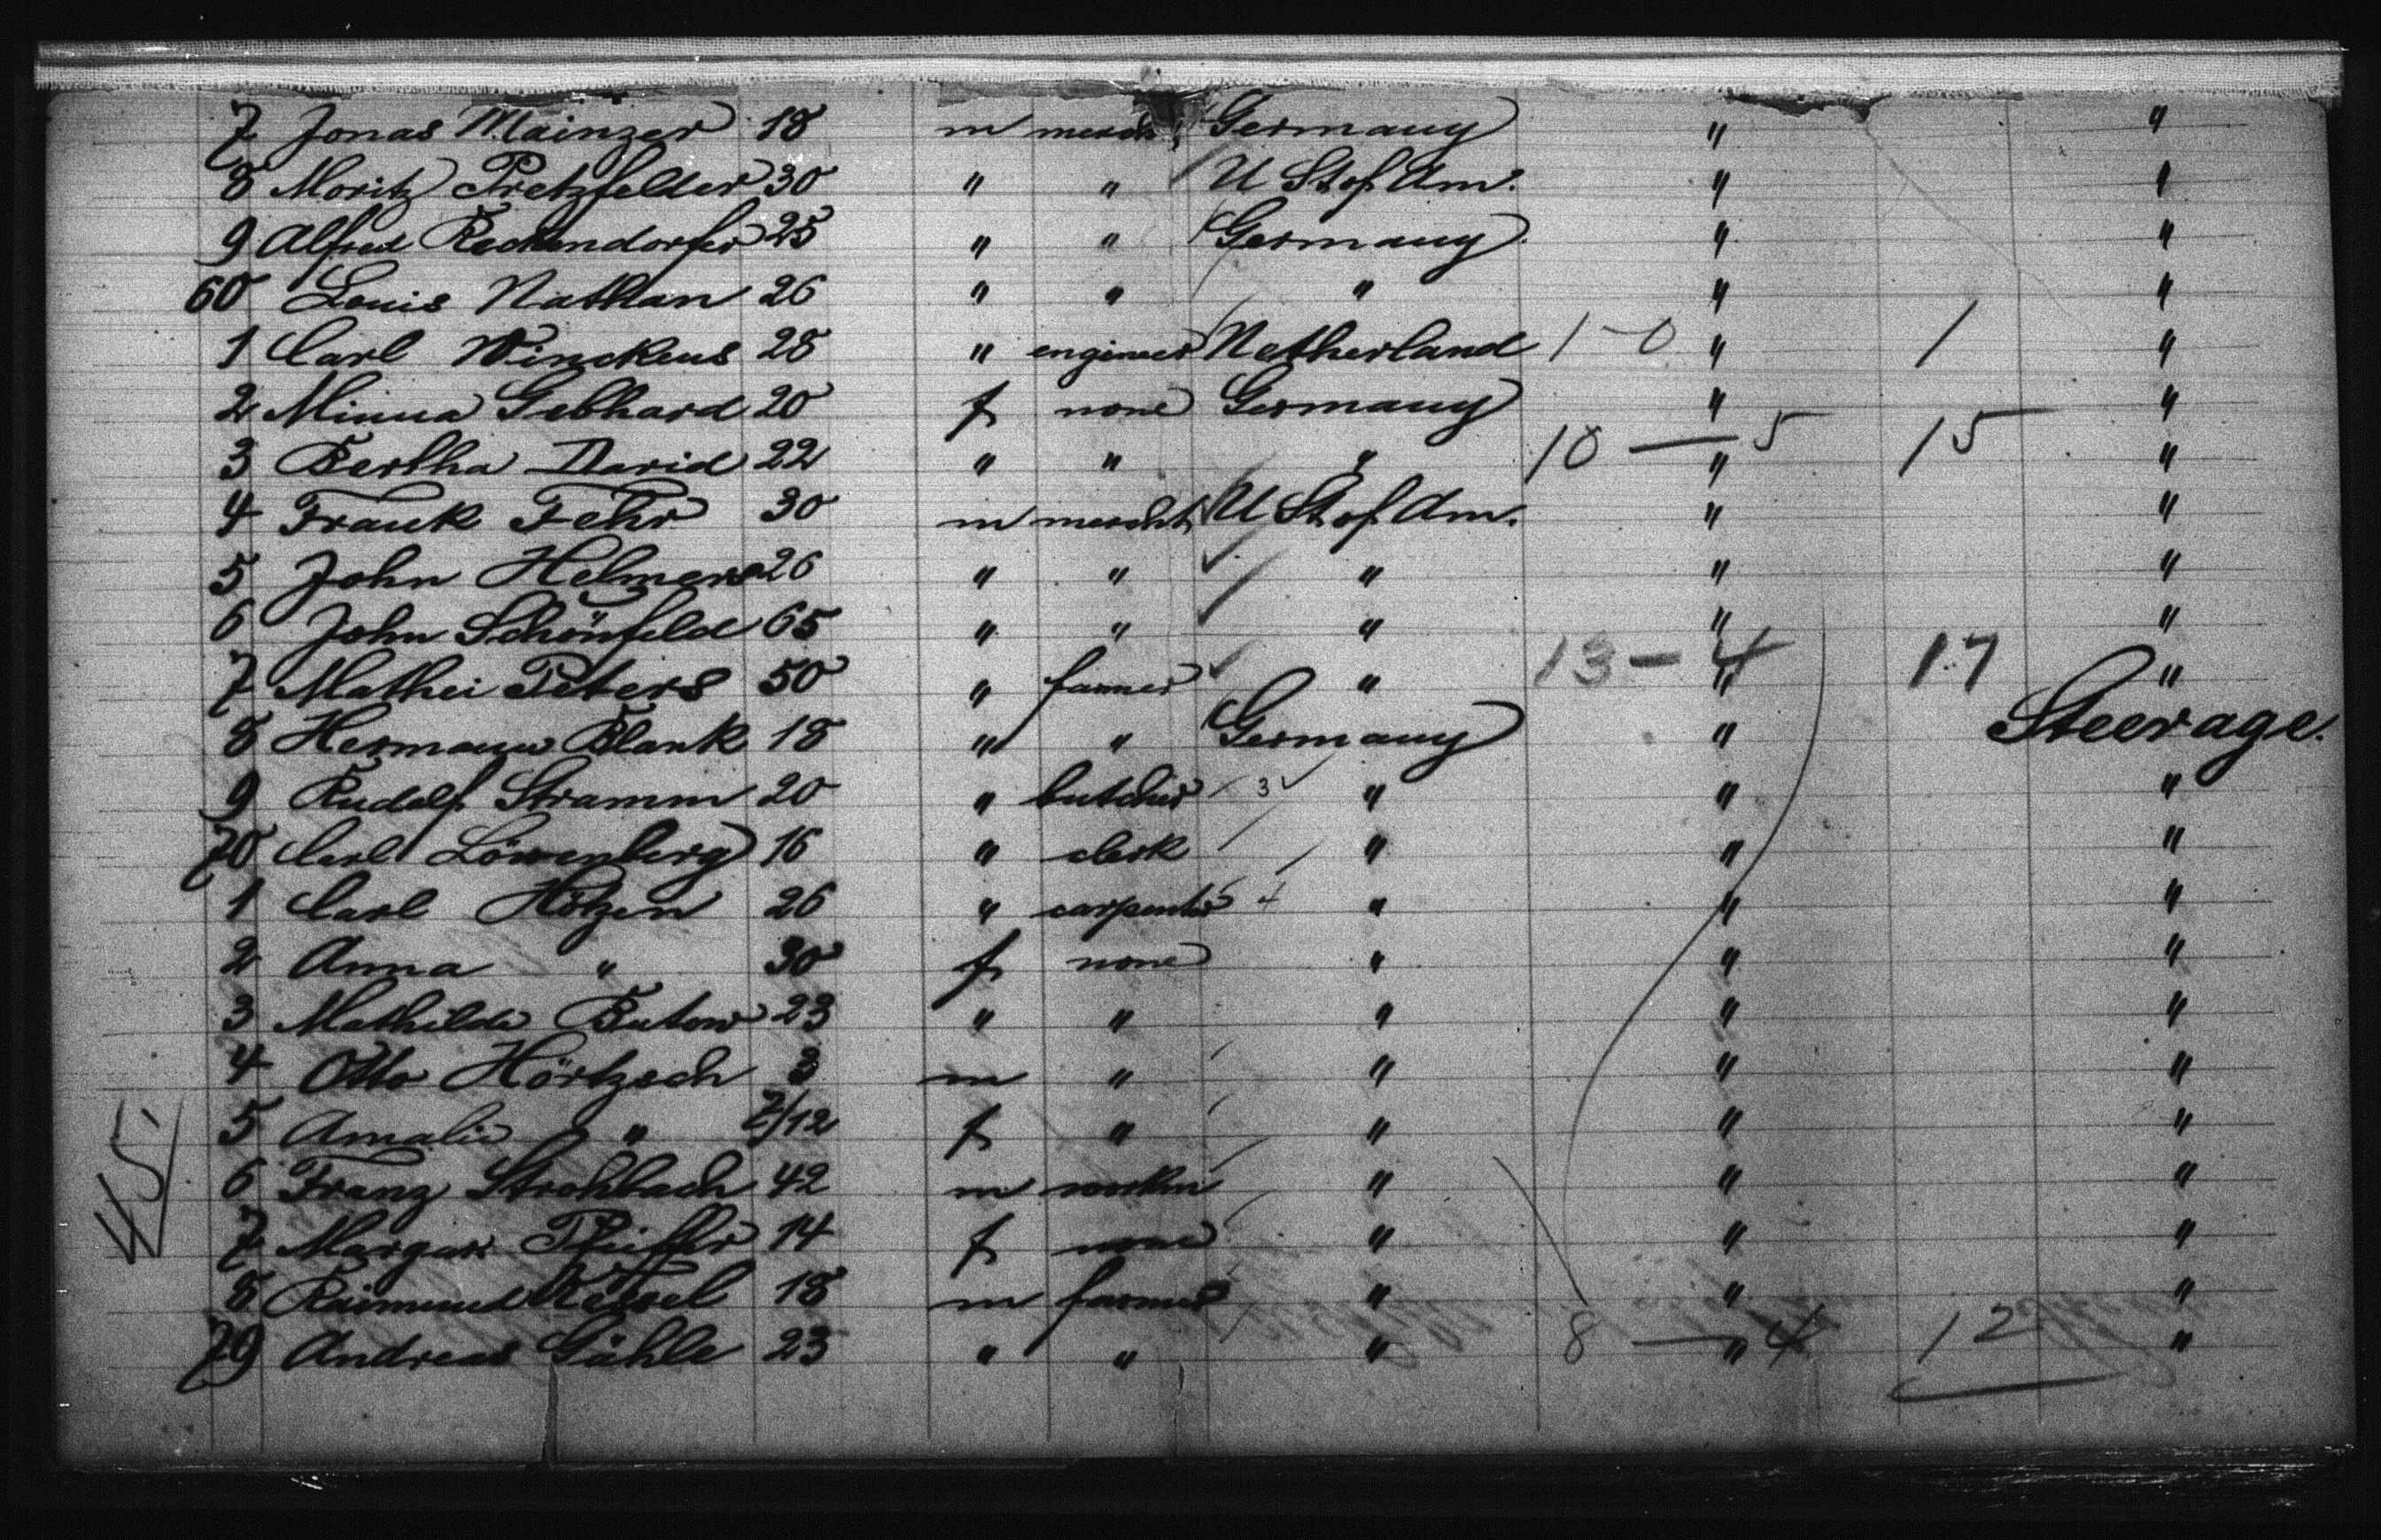 7 Jonas Mainzer 18 m mercht Germany " "
8 Moritz Pretzfelder 30 " " U St of Am. " "
9 Alfred Reckendorfer 25 " " Germany " "
60 Louis Nathan 26 " " " " "
1 Carl Winckens 28 " engineer Netherland 1 - 0 " 1 "
2 Minna Gebhard 20 f none Germany " "
3 Bertha David 22 " " " 10 — 5 " 15 "
4 Frank Fehr 30 m mercht U St of Am. " "
5 John Helmers 26 " " " " "
6 John Schönfeld 65 " " " " "
7 Mathei Peters 50 " farmer " 13 - 4 " 17 "
8 Hermann Blank 18 " " Germany " Steerage.
9 Rudolf Stramm 20 " butcher 3 " " "
70 Carl Löwenberg 16 " clerk " " "
1 Carl Hötzen 26 " carpenter " " "
2 Anna " 30 f none " " "
3 Mathilde Butow 23 " " " " "
4 Otto Hörtzsch 3 m " " " "
5 Amalie " /12 f " " " "
6 Franz Strohbach 42 m " " "
7 Margar. 14 f none " " "
8 Raimund 18 m farmer " " "
79 Andreas Gühle 23 " " " 8 — 4 " 12 "